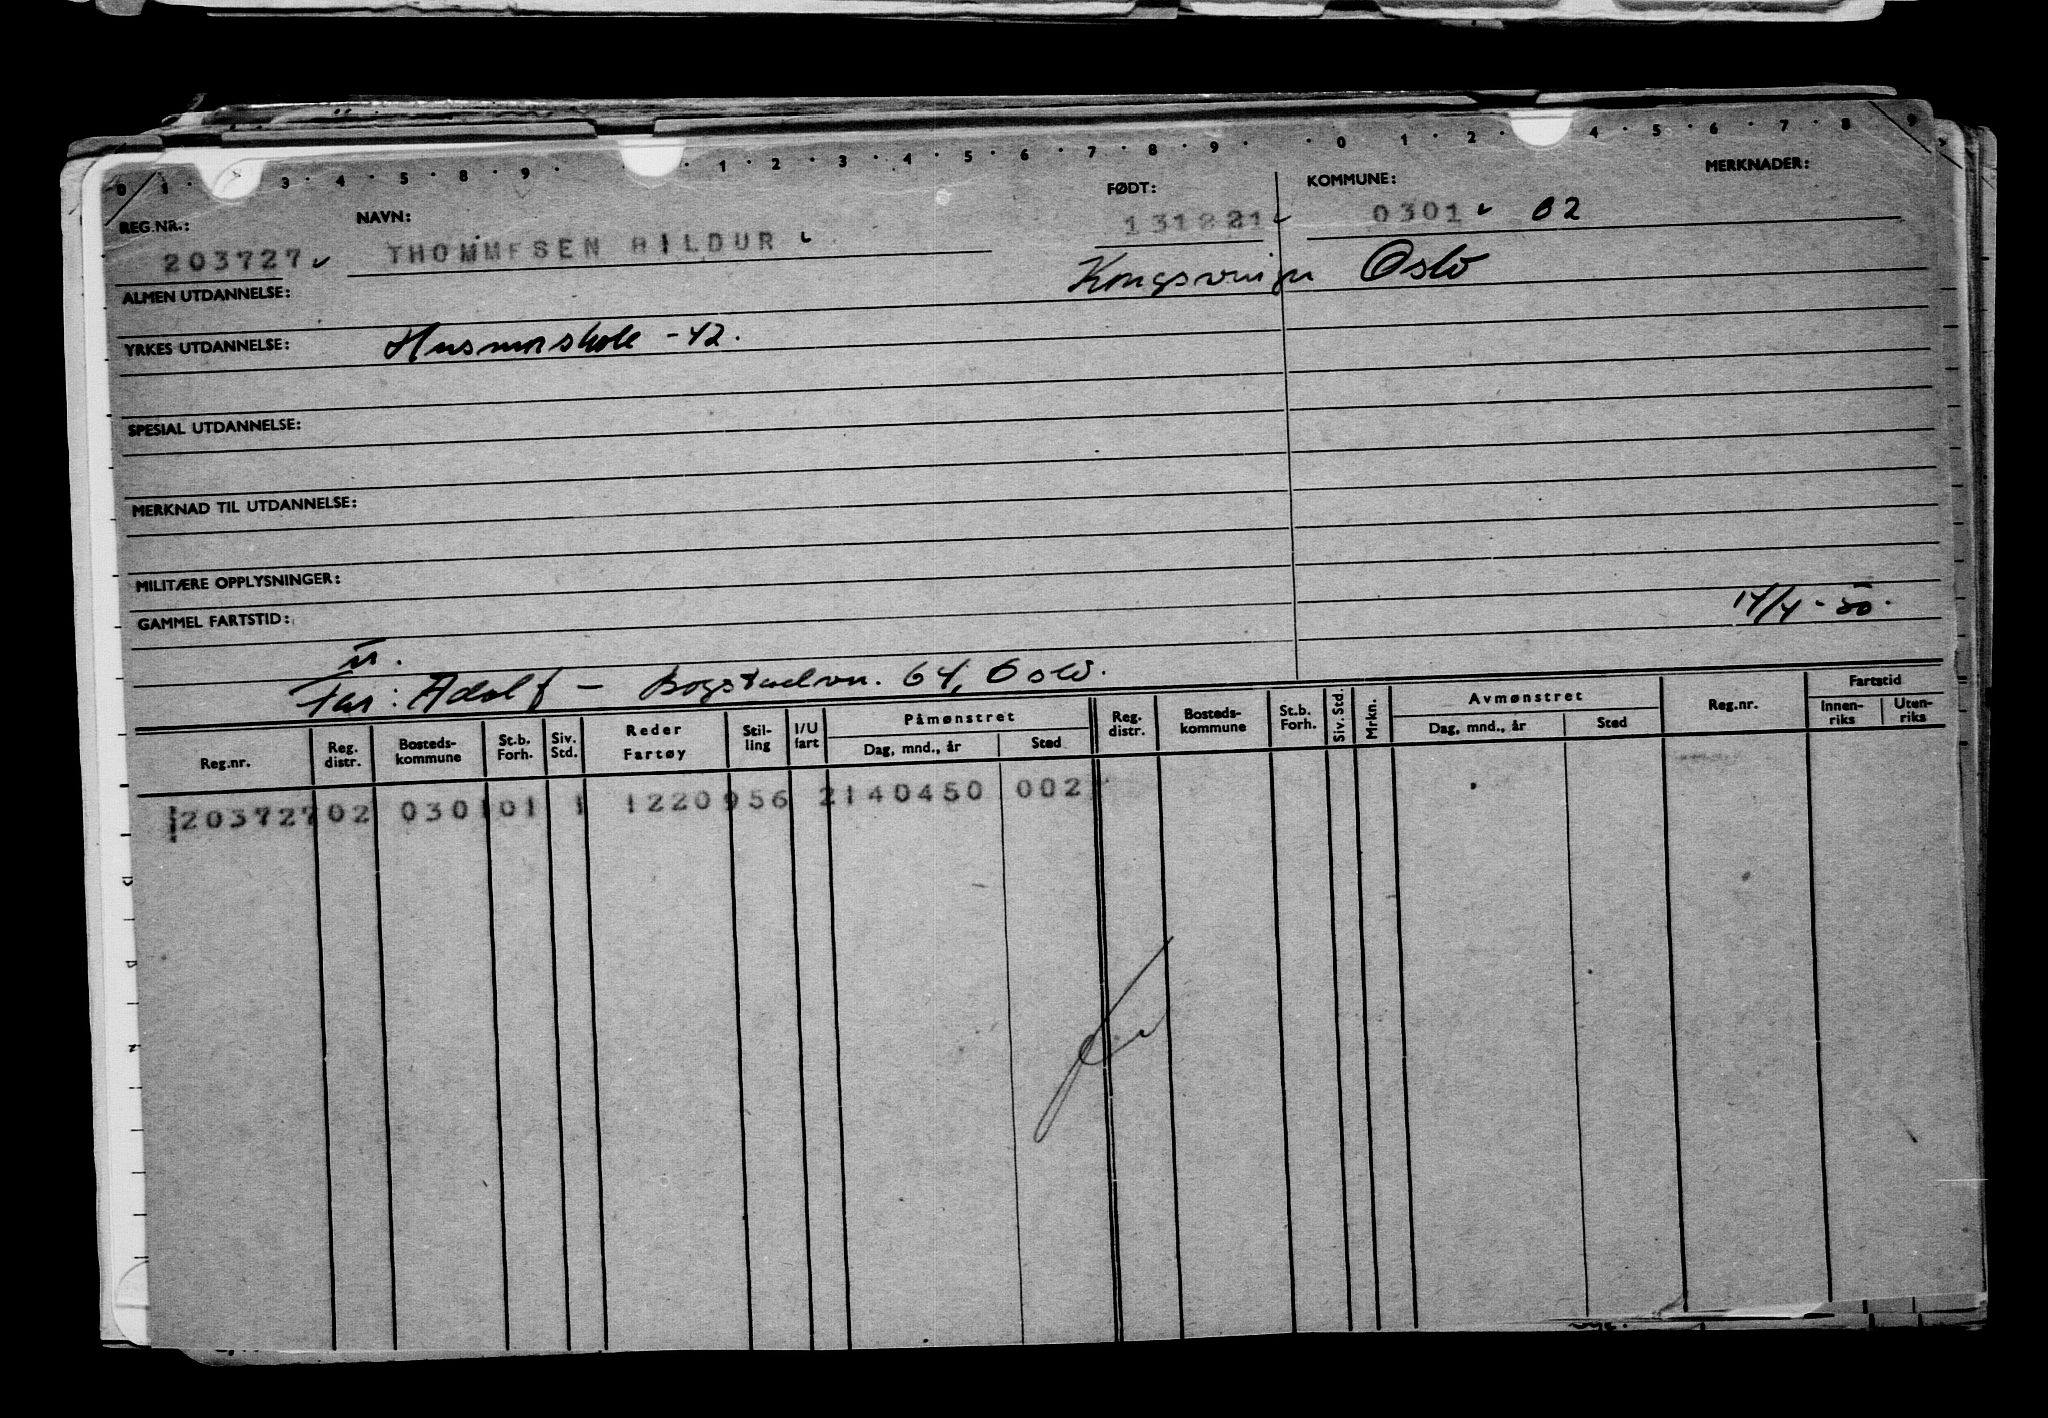 0 1 3 4 5 8 9 1 2 3 4 5 6 7 8 9 0 1 2 4 5 6 7 8 9
REG.NR.: NAVN: FØDT: KOMMUNE: MERKNADER:
203727 THOMMESEN HILDUR 0301 02
Kongsvinger Oslo
ALMEN UTDANNELSE:
YRKES UTDANNELSE: Husmorskole -42.
SPESIAL UTDANNELSE:
MERKNAD TIL UTDANNELSE:
MILITÆRE OPPLYSNINGER:
GAMMEL FARTSTID: 14/4-50.
Far: Adolf - Bogstadvn. 64, Oslo.
Reg.nr. Reg. distr. Bosteds-kommune St.b. Forh. Siv. Std. Reder Fartøy Stil-ling I/U fart Påmønstret Dag, mnd., år Sted Reg. distr. Bosteds-kommune St.b. Forh. Siv. Std. Mrkn. Avmønstret Dag, mnd., år Sted Reg.nr. Fartstid Innen-riks Uten-riks
203727 02 0301 01 1 1220956 2140450 002